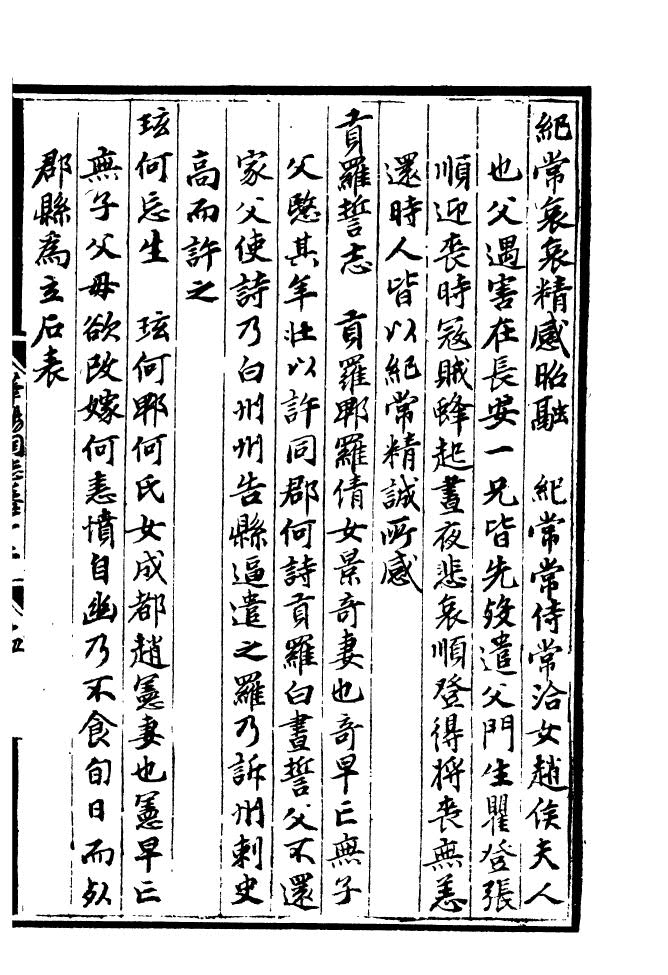 紀常哀哀精感昭融　紀常常侍常洽女趙侯夫人
也父遇害在長安一兄皆先歿遣父門生瞿登張
順迎喪時冦賊蜂起晝夜悲哀順登得將喪無恙
還時人皆以紀常精誠所感
貢羅誓志　貢羅郫羅倩女景竒妻也竒早亡無子
父愍其年壯以許同郡何詩貢羅白晝誓父不還
家父使詩乃白州州告縣逼遣之羅乃訴州刺史
高而許之
玹何忘生　玹何郫何氏女成都趙憲妻也憲早亡
無子父母欲改嫁何恚憤自幽乃不食旬日而歿
郡縣為立石表
華陽國志卷十二
十五